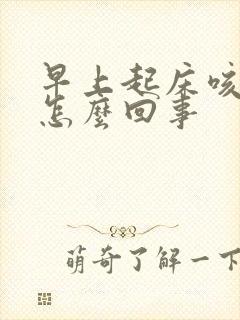 早上起床咳
怎麼回事
萌奇了解一下